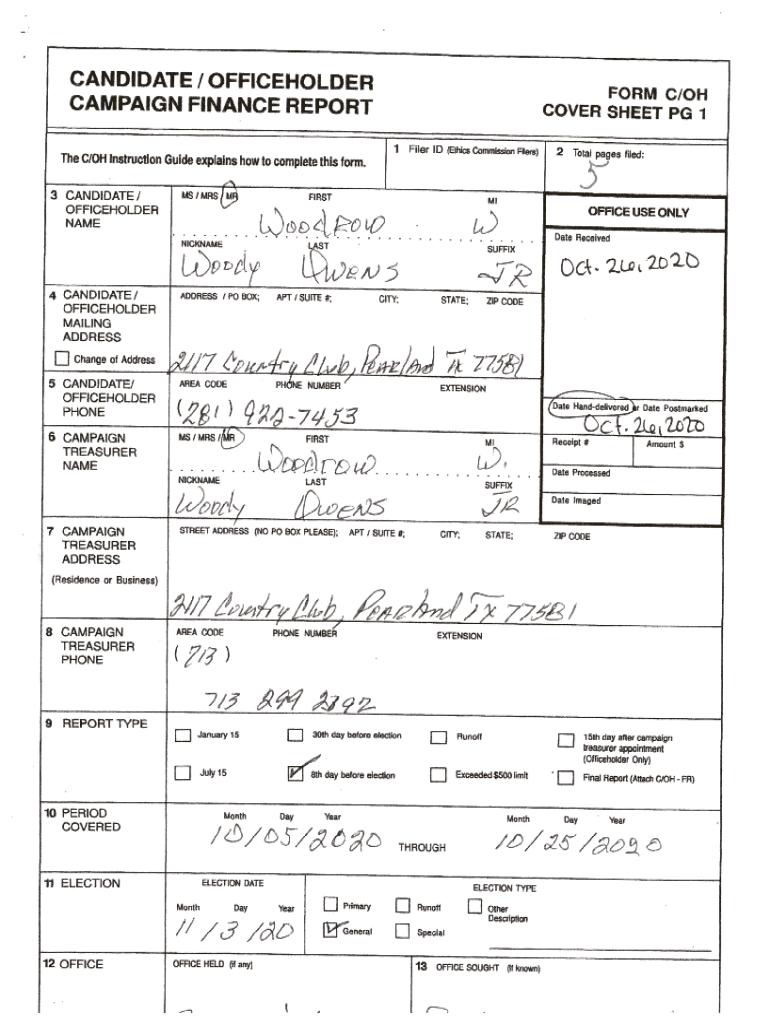 CANDIDATE / OFFICEHOLDER
CAMPAIGN FINANCE REPORT
FORM C/OH
COVER SHEET PG 1
The C/OH Instruction Guide explains how to complete this form.
1 Filer ID (Ethics Commission Filers)
2 Total pages filed:
5
3 CANDIDATE / OFFICEHOLDER NAME
MS / MRS / MR FIRST MI
Woodrow W
NICKNAME LAST SUFFIX
Woody Owens JR
OFFICE USE ONLY
Date Received
Oct. 26, 2020
4 CANDIDATE / OFFICEHOLDER MAILING ADDRESS
Change of Address
ADDRESS / PO BOX; APT / SUITE #; CITY; STATE; ZIP CODE
2117 Country Club, Pearland TX 77581
5 CANDIDATE/ OFFICEHOLDER PHONE
AREA CODE PHONE NUMBER EXTENSION
(281) 922-7453
Date Hand-delivered or Date Postmarked
Oct. 26, 2020
6 CAMPAIGN TREASURER NAME
MS / MRS / MR FIRST MI
Woodrow W.
NICKNAME LAST SUFFIX
Woody Owens JR
Receipt # Amount $
Date Processed
Date Imaged
7 CAMPAIGN TREASURER ADDRESS
(Residence or Business)
STREET ADDRESS (NO PO BOX PLEASE); APT / SUITE #; CITY; STATE; ZIP CODE
2117 Country Club, Pearland TX 77581
8 CAMPAIGN TREASURER PHONE
AREA CODE PHONE NUMBER EXTENSION
(713)
713 299 2392
9 REPORT TYPE
January 15 30th day before election Runoff 15th day after campaign treasurer appointment (Officeholder Only)
July 15 8th day before election Exceeded $500 limit Final Report (Attach C/OH - FR)
10 PERIOD COVERED
Month Day Year Month Day Year
10/05/2020 THROUGH 10/25/2020
11 ELECTION
ELECTION DATE ELECTION TYPE
Month Day Year
11/3/20
Primary Runoff Other Description
General Special
12 OFFICE
OFFICE HELD (if any)
13 OFFICE SOUGHT (if known)